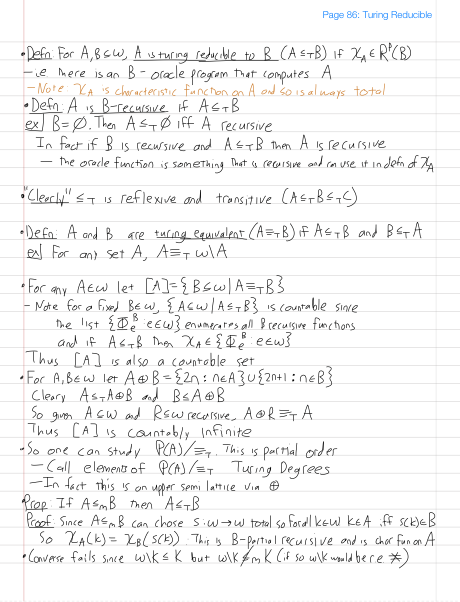 Page 86: Turing Reducible
• Defn: For A,B⊆ω, A is turing reducible to B (A ≤_T B) if χ_A ∈ R^P(B)
– i.e. there is an B-oracle program that computes A
– Note χ_A is characteristic function on A and so is always total
• Defn: A is B-recursive if A≤_T B
ex] B=∅. Then A ≤_T ∅ iff A recursive
In fact if B is recursive and A≤_T B then A is recursive
– the oracle function is something that is recursive and can use it in defn of χ_A
• "Clearly" ≤_T is reflexive and transitive (A≤_T B≤_T C)
• Defn: A and B are turing equivalent (A≡_T B) if A≤_T B and B≤_T A
ex] For any set A, A≡_T ω\A
• For any A∈ω let [A]={B⊆ω | A≡_T B}
– Note for a fixed B∈ω, {A⊆ω | A≤_T B} is countable since
the list {Φ_e^B : e∈ω} enumerates all B recursive functions
and if A≤_T B then χ_A ∈ {Φ_e^B : e∈ω}
Thus [A] is also a countable set
• For A,B∈ω let A⊕B = {2n : n∈A}∪{2n+1 : n∈B}
Cleary A≤_T A⊕B and B≤A⊕B
So given A⊆ω and R⊆ω recursive, A⊕R ≡_T A
Thus [A] is countably infinite
• So one can study P(A)/≡_T. This is partial order
– Call elements of P(A)/≡_T Turing Degrees
– In fact this is an upper semi lattice via ⊕
Prop: If A≤_m B then A≤_T B
Proof: Since A≤_m B can chose s:ω→ω total so for all k∈ω k∈A iff s(k)∈B
So χ_A(k) = χ_B(s(k)). This is B-partial recursive and is char fun on A
• Converse fails since ω\K ≤ K but ω\K ≰_m K (if so ω\K would be r.e. ※)